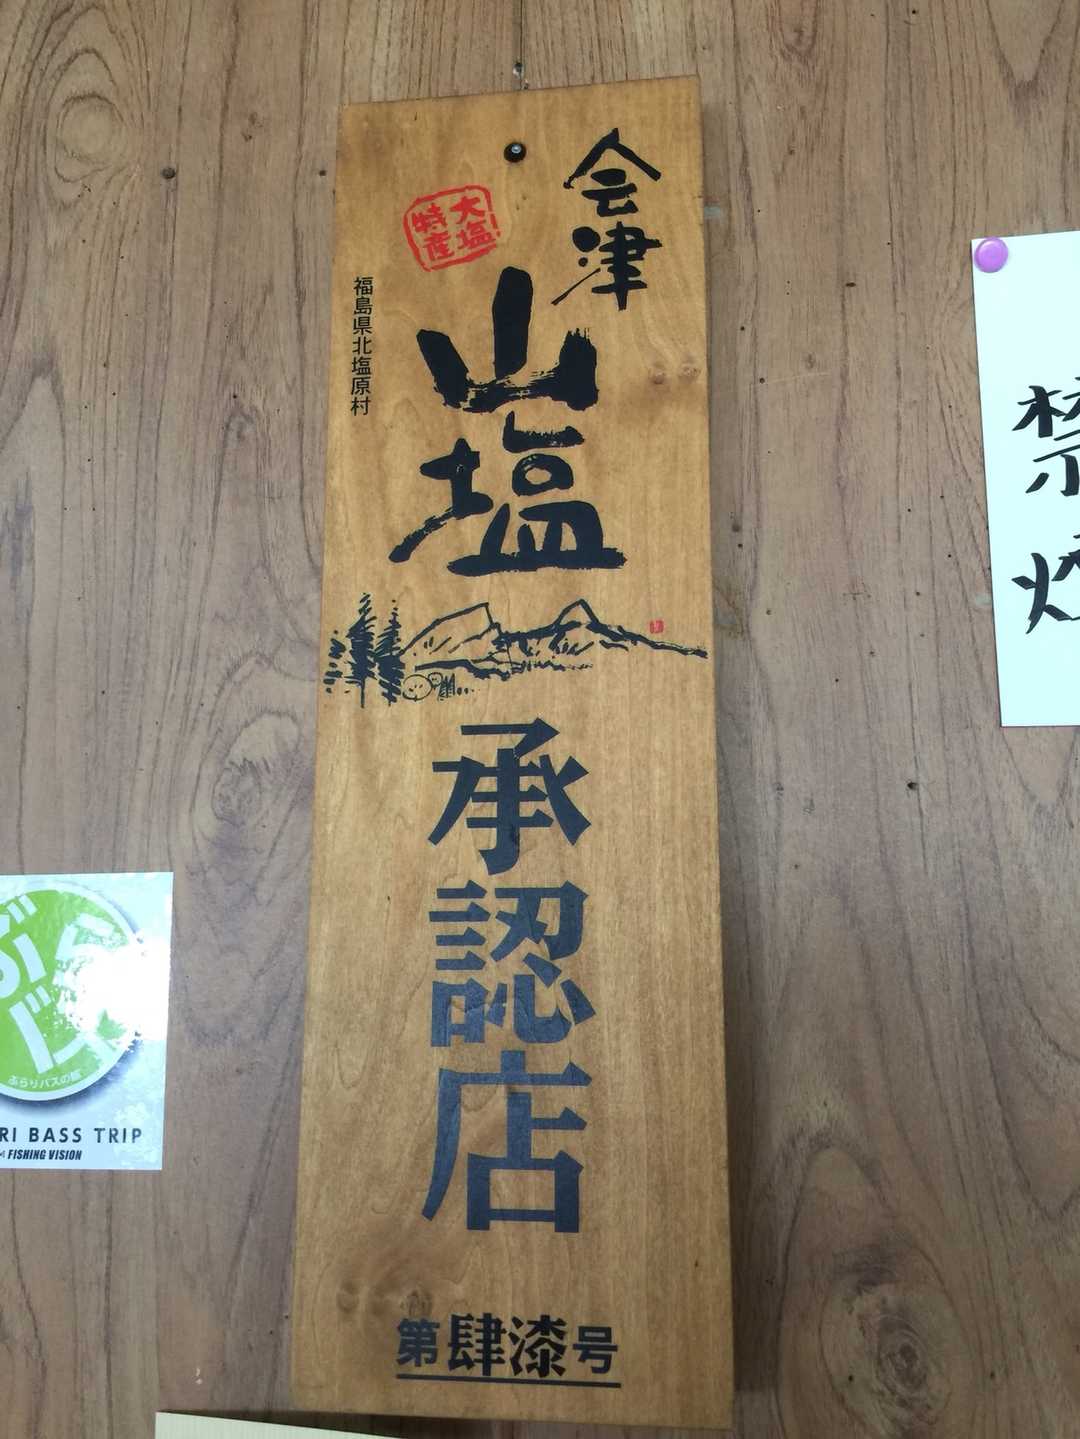 会津
山塩
大塩
特産
福島県北塩原村
承認店
第肆漆号
禁
ぶら
バス
ぶらりバスの旅
RI BASS TRIP
FISHING VISION